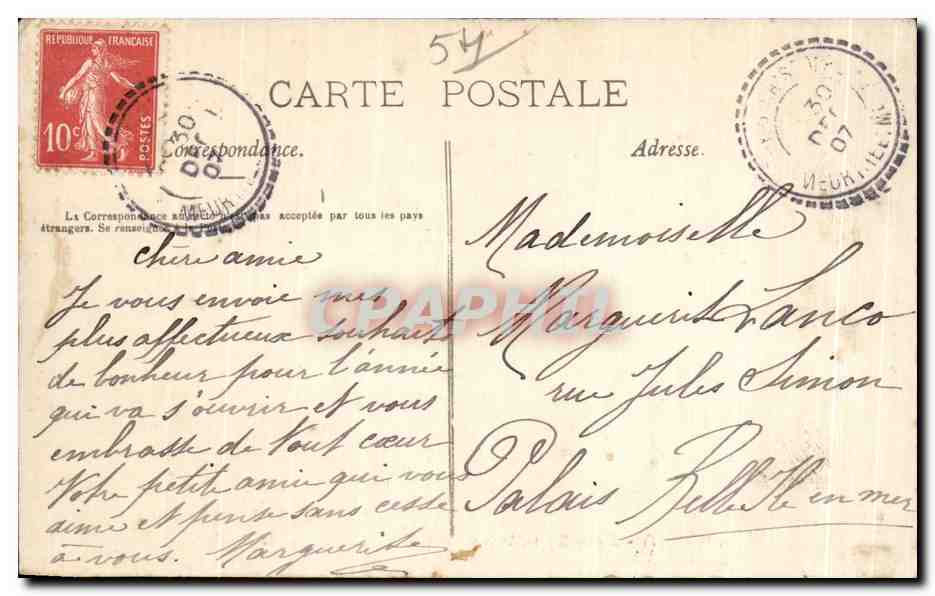 RÉPUBLIQUE FRANÇAISE
10c
POSTES
57
CARTE POSTALE
30
DEC
07
MEURTHE
30
DEC
07
MEURTHE-ET-M
Correspondance.
Adresse.
La Correspondance au recto n'est pas acceptée par tous les pays
étrangers. Se renseigner à la Poste
chère amie
Je vous envoie mes
plus affectueux souhaits
de bonheur pour l'année
qui va s'ouvrir et vous
embrasse de tout cœur
Votre petite amie qui vous
aime et pense sans cesse
à vous. Marguerite
Mademoiselle
Marguerite Lanco
rue Jules Simon
Palais Belle Ile en mer
CPAPHIL